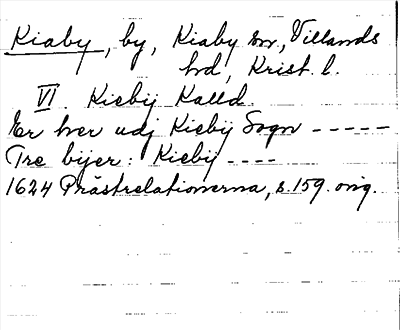 Kiaby, by, Kiaby sn, Villands
hd, Krist. l.
VI. Kieby Kalld.
Er her udj Kiebÿ Sogn -----
Tre bÿer: Kiebÿ ----
1624 Prästrelationerna, s. 159. orig.